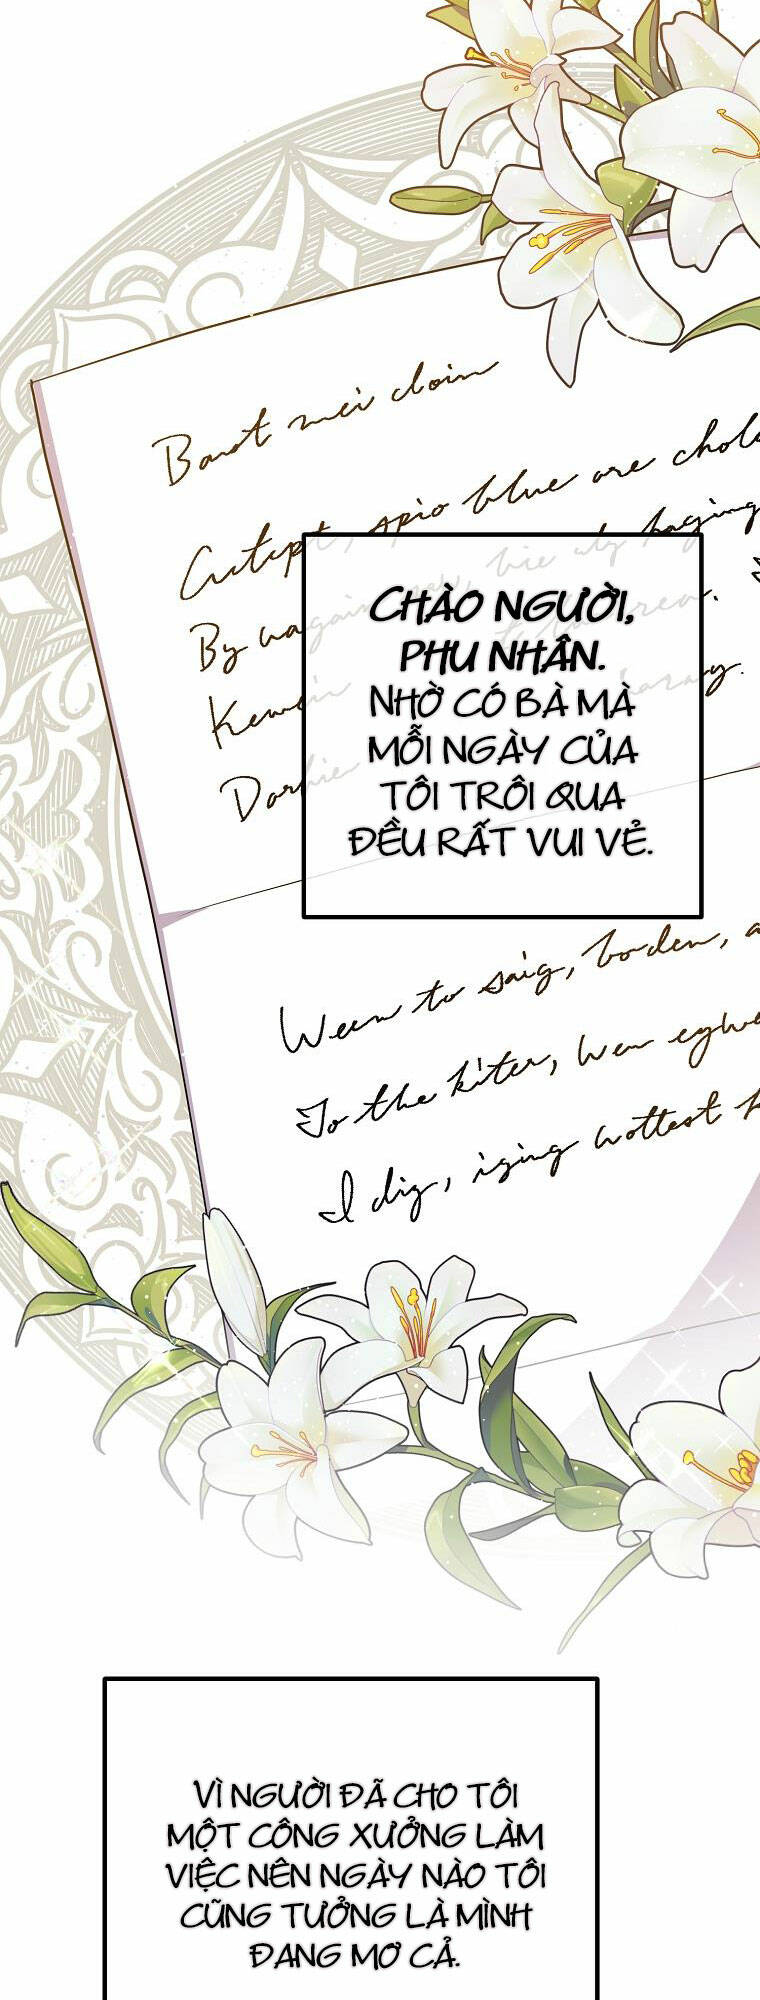 Baot mei doin
Cutept, spio blue are chola
By wagain
haging
Kewein
Darhie
CHÀO NGƯỜI,
PHU NHÂN.
NHỜ CÓ BÀ MÀ
MỖI NGÀY CỦA
TÔI TRÔI QUA
ĐỀU RẤT VUI VẺ.
Ween to saig, boden, a
To the kiter, wen egwe
I dig, iging wottest
VÌ NGƯỜI ĐÃ CHO TÔI
MỘT CÔNG XƯỞNG LÀM
VIỆC NÊN NGÀY NÀO TÔI
CŨNG TƯỞNG LÀ MÌNH
ĐANG MƠ CẢ.